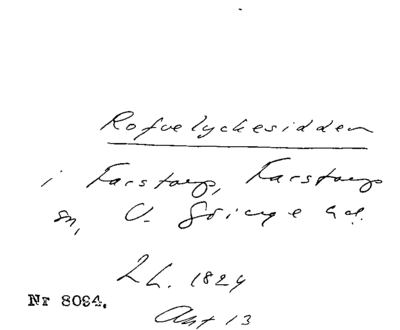 Rofvelyckesidden
i Farstorp, Farstorps
sn, V. Göinge hd.
L h. 1824
Akt 13
Nr 8094.